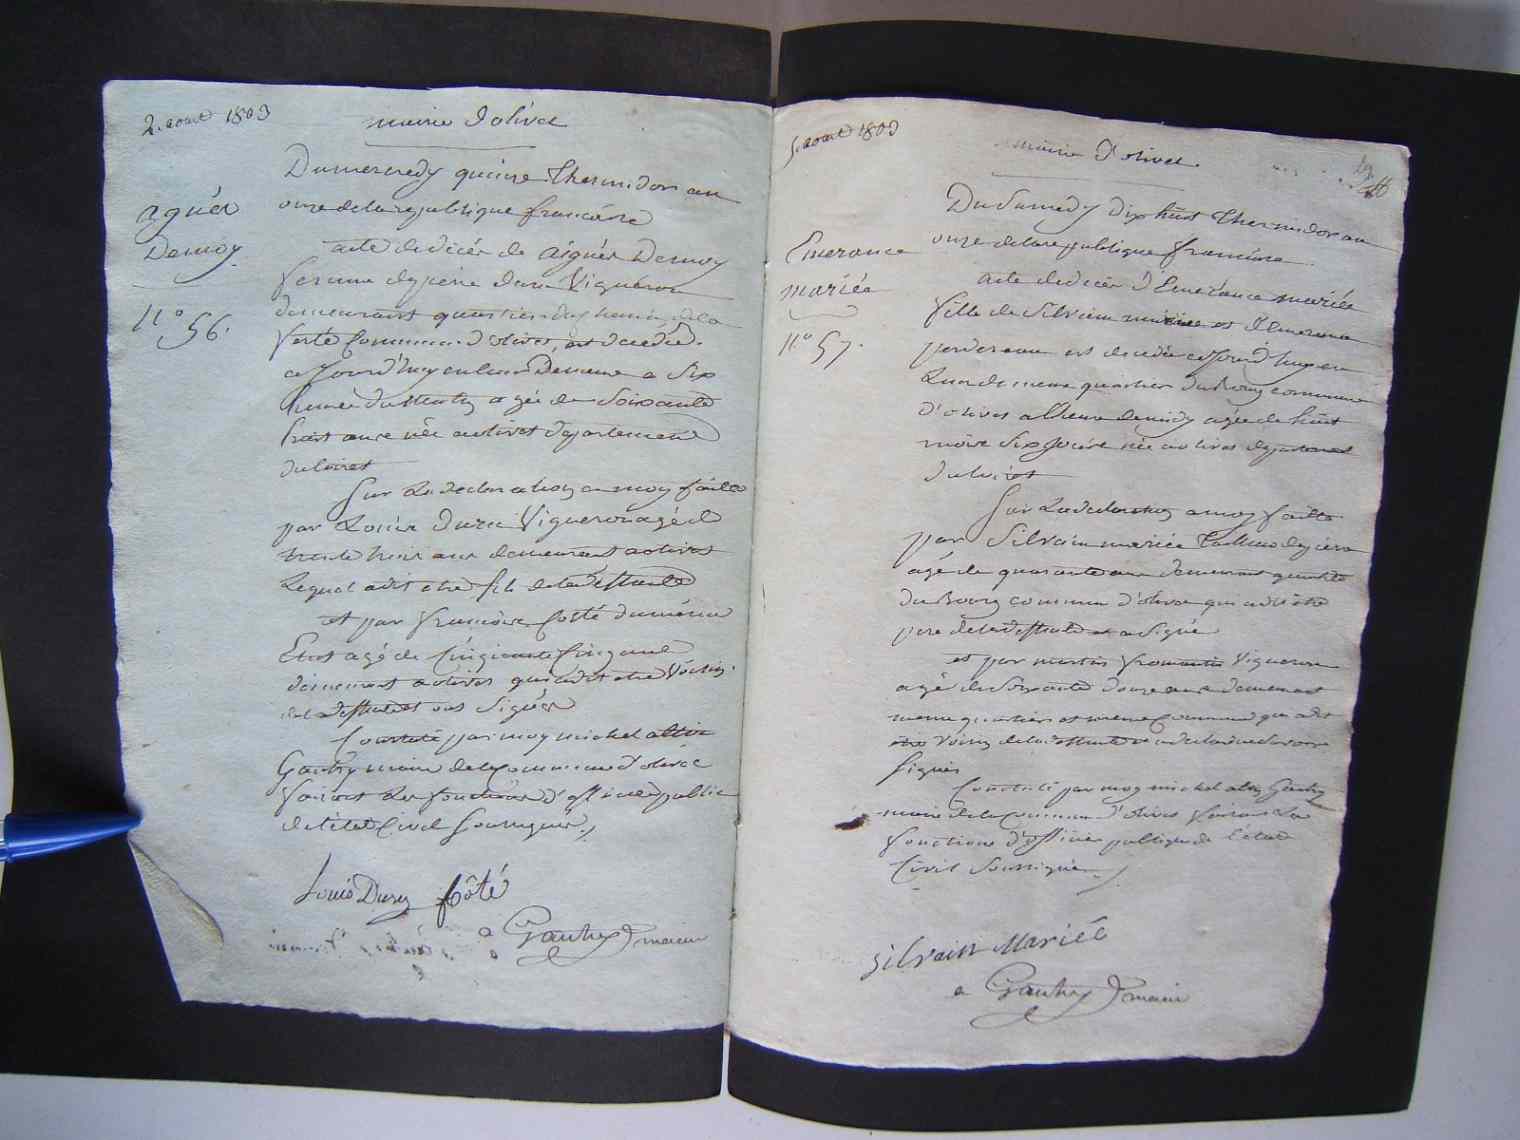 2. aout 1803
mairie d'olivet
Du mercredy quinze Thermidor an
onze de la republique francaise
agnés
Demoy
n° 56.
acte de décés de Aignés Demoy
femme de piere Duré Vigneron
demeurant quartier du chemin de la
ferté Commune d'olivet, est decedée
ce jourd'huy en leur Demeure a Six
heures du matin agée de Soixante
huit ans née a olivet departement
du loiret
Sur La declaration a moy faitte
par Louis Duré Vigneron agé de
trente trois ans demeurant a olivet
Lequel a dit etre fils de la deffunte
et par francois Coté du même
Etat agé de Cinquante Cinq ans
demeurant a olivet qui a dit etre Voisin
de la deffunte et ont Signés
Constaté par moy michel
Gauthy maire de la Commune d'olivet
faisant Les fonctions d'officier public
de l'état Civil Soussigné
Louis Duré Côté
Gauthy maire
5. aout 1803
mairie d'olivet
Du Samedy dix huit Thermidor an
onze de la republique francaise
Emerance
mariée
n° 57.
acte de décés d'Emerance mariée
fille de Silvain mariée et d'Emerance
perdereau est decedée ce jourd'huy en
Leur demeure quartier du Bourg commune
d'olivet a l'heure de midy agée de huit
mois Six jours née a olivet departement
du loiret
Sur La declaration a moy faitte
par Silvain mariée
agé de quarante ans demeurant quartier
du Bourg commune d'olivet qui a dit être
pere de la deffunte et a Signé
et par martin fromentin Vigneron
agé de Soixante douze ans demeurant
meme quartier et meme Commune qui a dit
etre Voisin de la deffunte et a declaré ne Savoir
Signer
Constaté par moy michel Gauthy
maire de la Commune d'olivet faisant Les
fonctions d'officier publique de l'etat
Civil Soussigné
Silvain Mariée
Gauthy maire